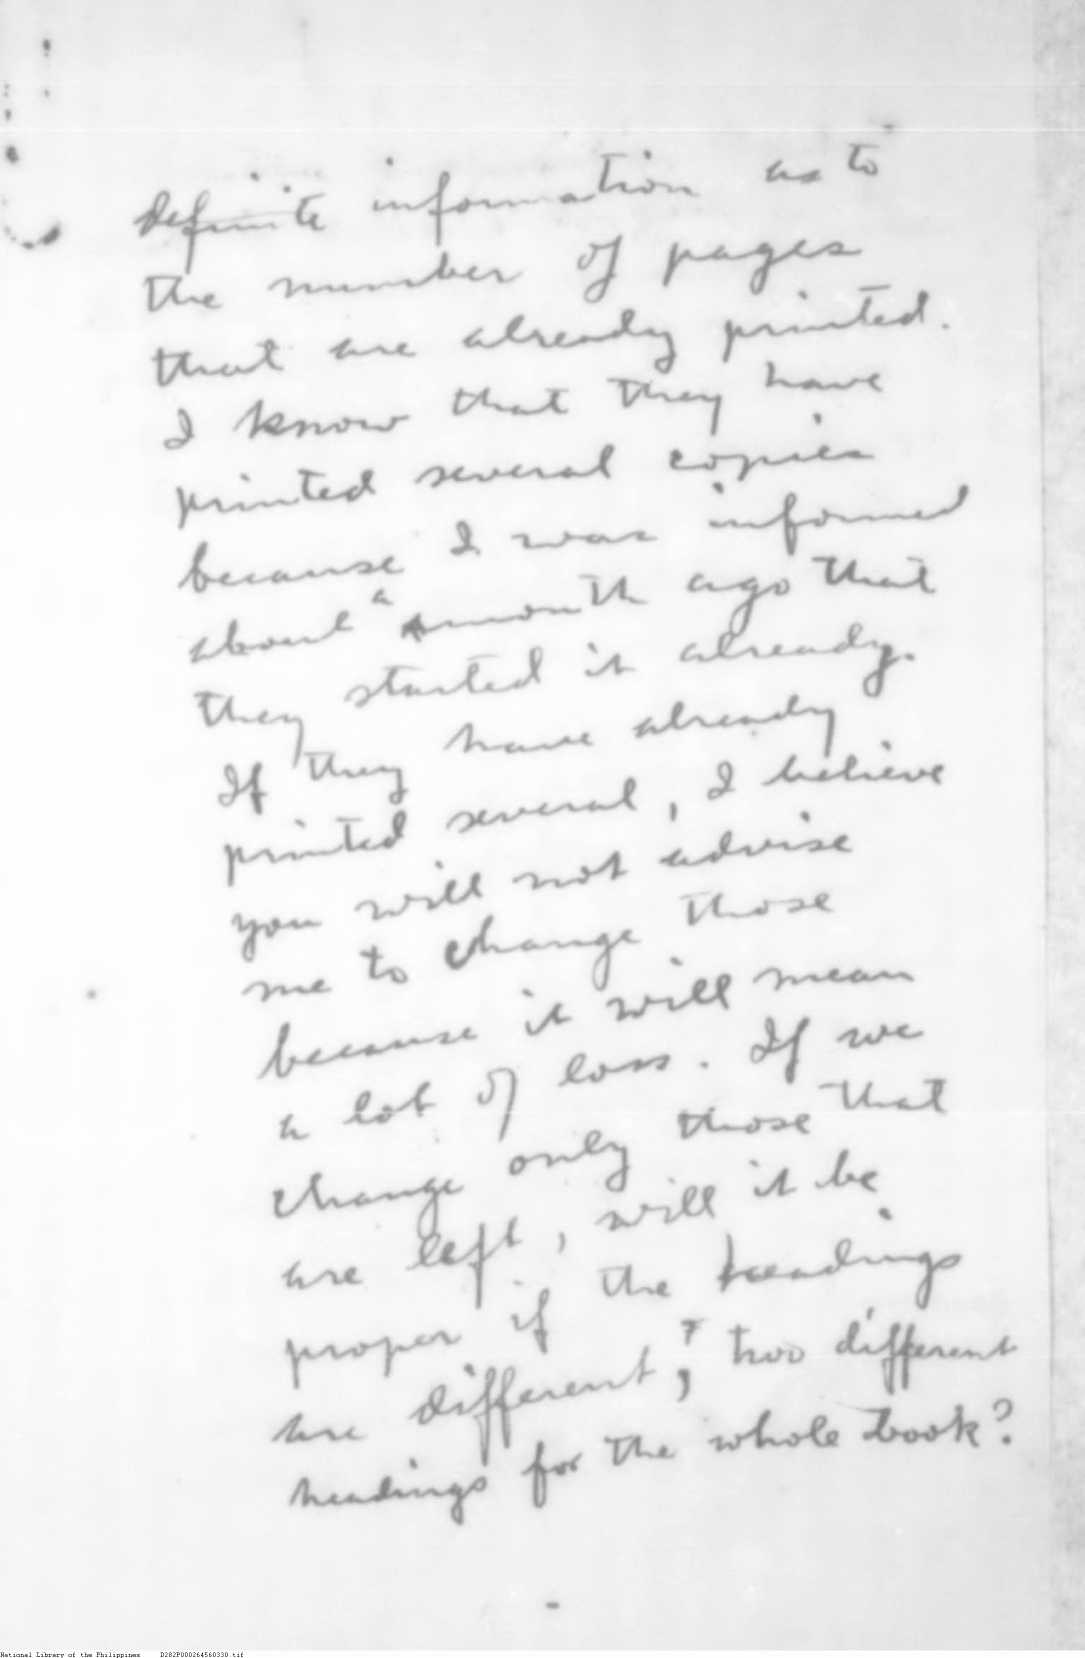 definite information as to
the number of pages
that are already printed.
I know that they have
printed several copies
because I was informed
about a month ago that
they started it already.
If they have already
printed several, I believe
you will not advise
me to change those
because it will mean
a lot of loss. If we
change only those that
are left, will it be
proper if the headings
are different, two different
headings for the whole book?
National Library of the Philippines D282P000264560330.tif